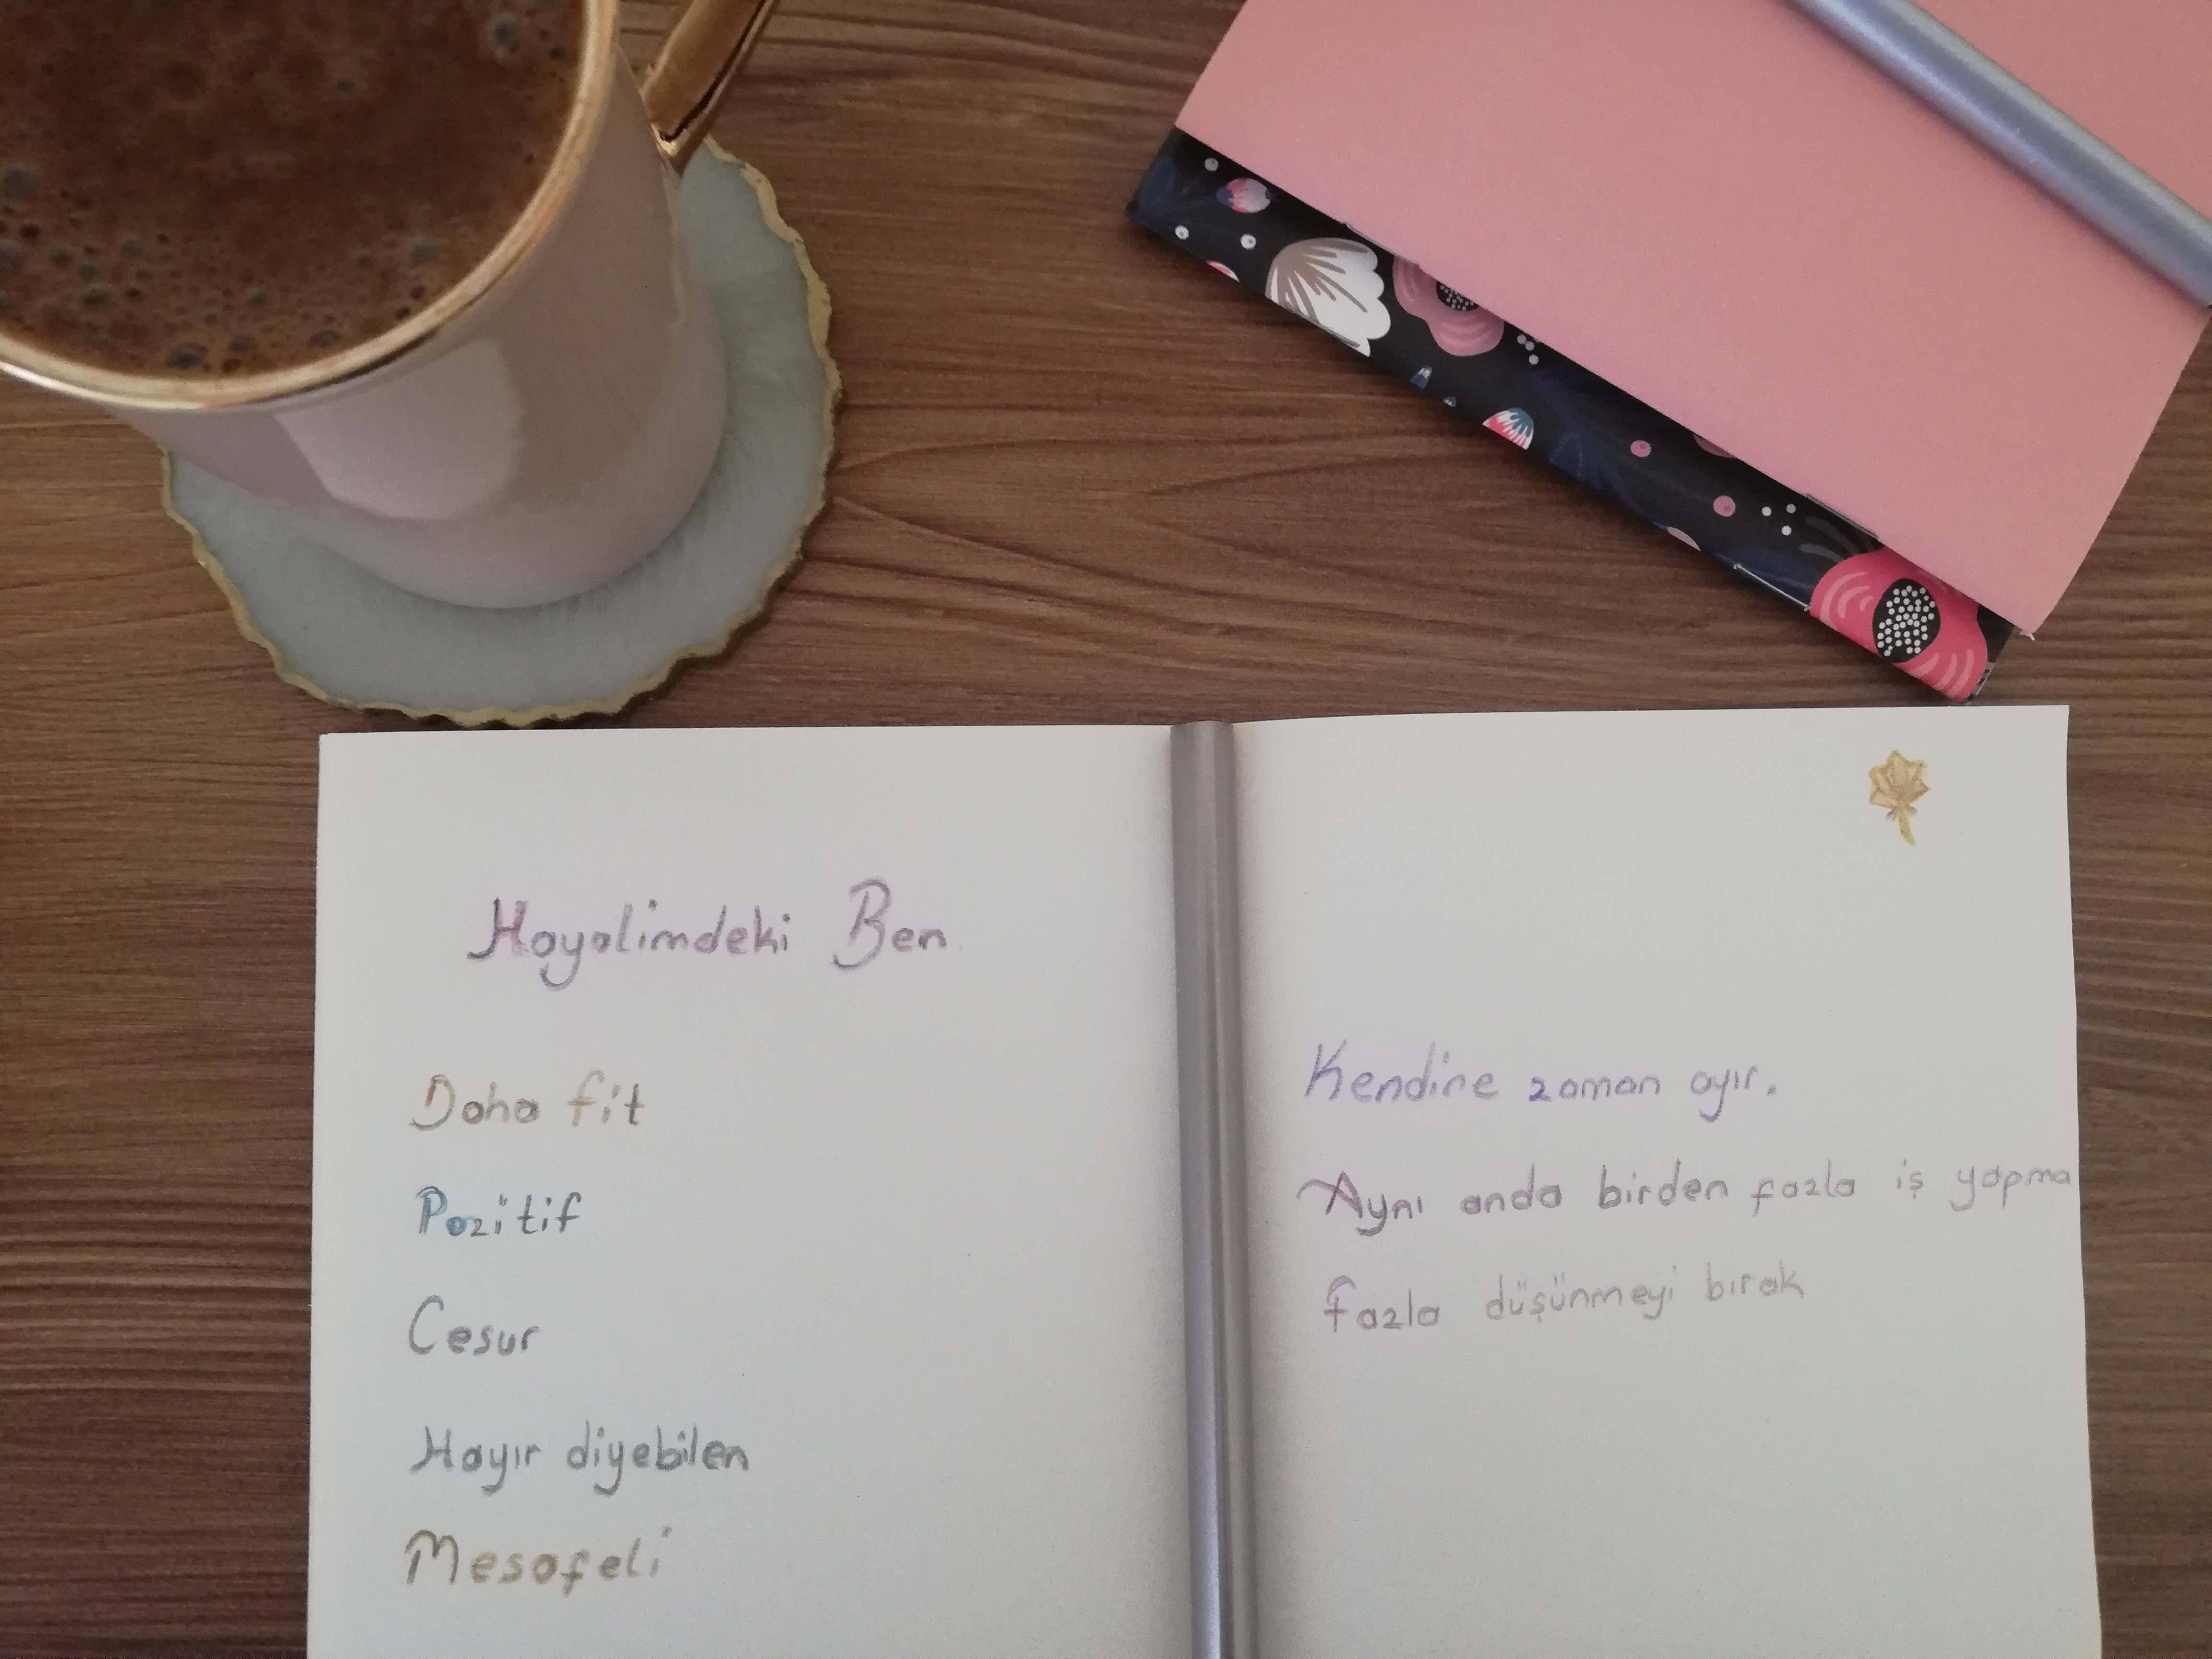 Hayalimdeki Ben
Daha fit
Pozitif
Cesur
Hayır diyebilen
Mesafeli
Kendine zaman ayır.
Aynı anda birden fazla iş yapma
Fazla düşünmeyi bırak